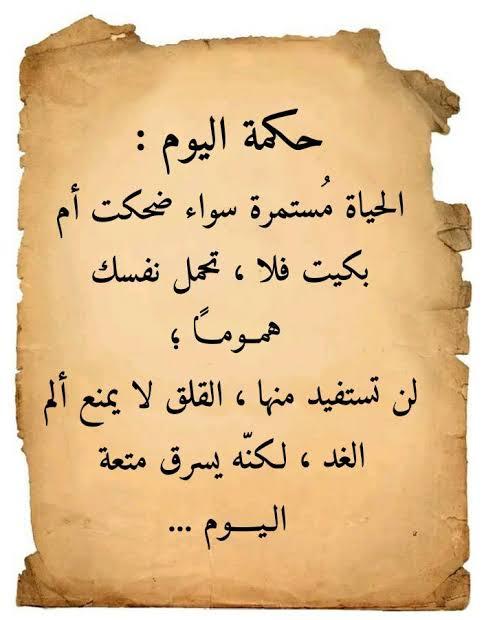 حكمة اليوم :
الحياة مُستمرة سواء ضحكت أم
بكيت فلا ، تحمل نفسك
همـومـاً ؛
لن تستفيد منها ، القلق لا يمنع ألم
الغد ، لكنّه يسرق متعة
اليـــوم ...